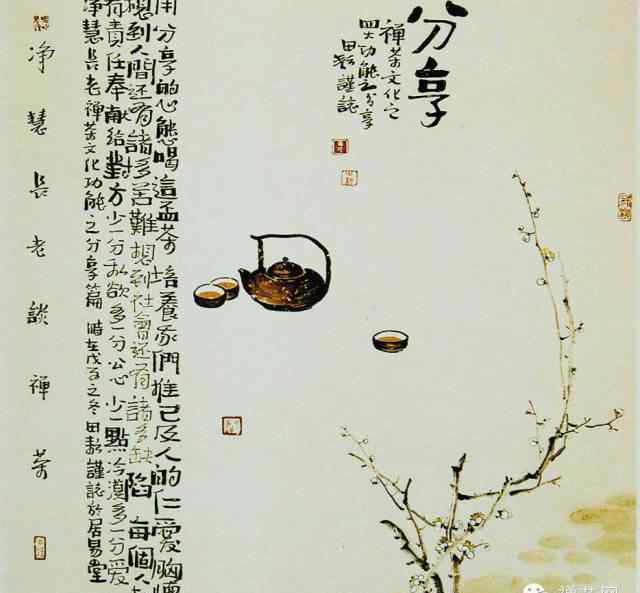 分享
禪茶文化之
四大功能之分享
田耘謹誌
用分享的心態喝這盃茶培養我們推己及人的仁愛胸懷
想到人間还有諸多苦難想到社會还有諸多缺陷每個人
有責任奉献給對方少一分私欲多一分公心少一點冷漠多一分愛
净慧長老禪茶文化功能之分享篇 時在戊子之冬田耘謹誌於居易堂
净慧長老談禪茶